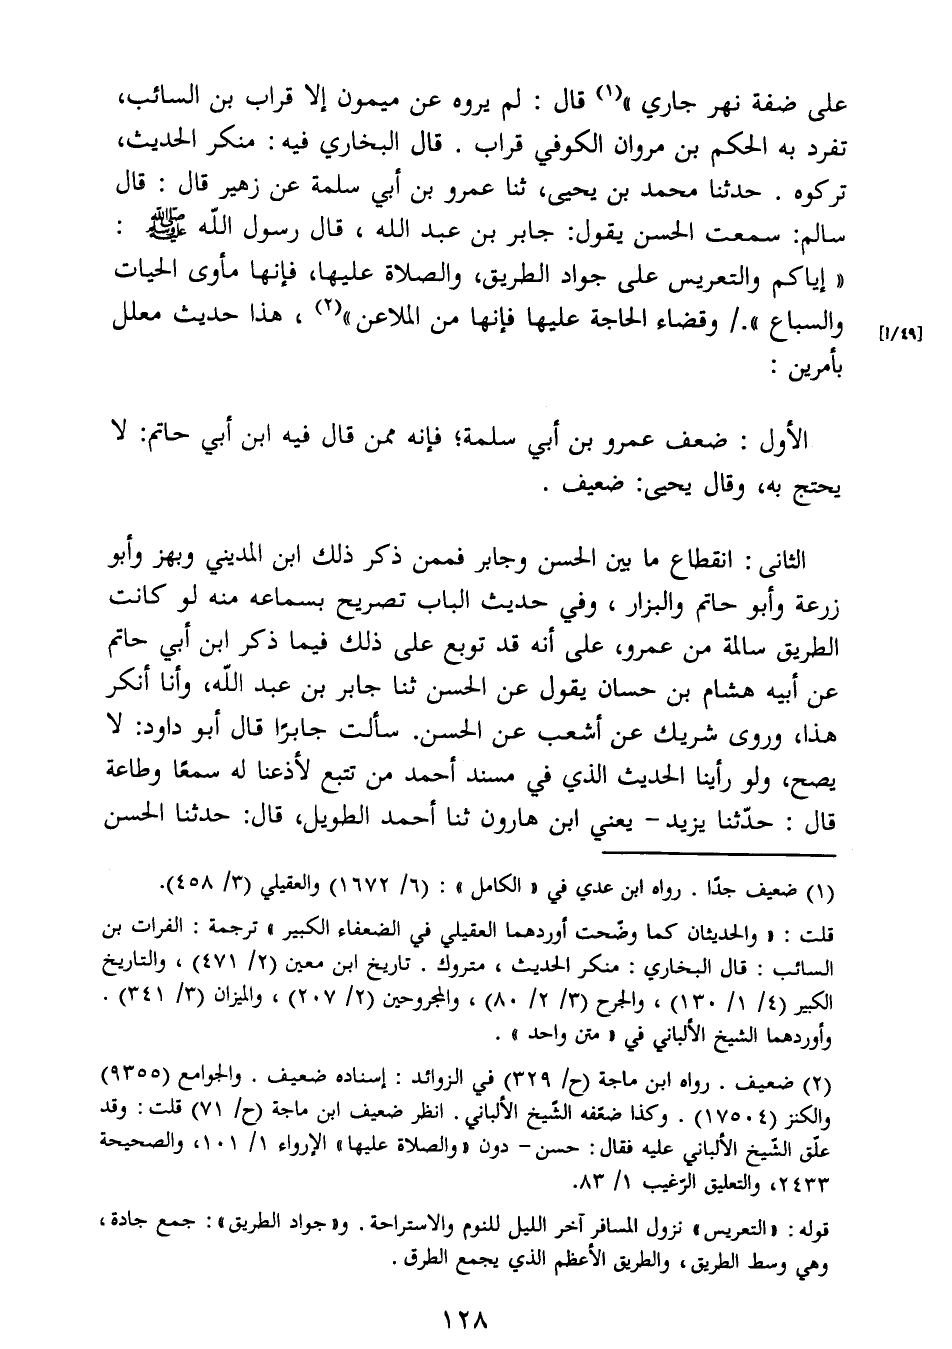 على ضفة نهر جاري »(١) قال : لم يروه عن ميمون إلا قراب بن السائب،
تفرد به الحكم بن مروان الكوفي قراب . قال البخاري فيه: منكر الحديث،
تركوه . حدثنا محمد بن يحيى، ثنا عمرو بن أبي سلمة عن زهير قال : قال
سالم: سمعت الحسن يقول: جابر بن عبد الله ، قال رسول اللّه ﷺ :
« إياكم والتعريس على جواد الطريق، والصلاة عليها، فإنها مأوى الحيات
والسباع »./ وقضاء الحاجة عليها فإنها من الملاعن»(٢) ، هذا حديث معلل
[٤٩/ ١]
بأمرين :
الأول : ضعف عمرو بن أبي سلمة؛ فإنه ممن قال فيه ابن أبي حاتم: لا
يحتج به، وقال يحيى: ضعيف .
الثانى : انقطاع ما بين الحسن وجابر فممن ذكر ذلك ابن المديني وبهز وأبو
زرعة وأبو حاتم والبزار ، وفي حديث الباب تصريح بسماعه منه لو كانت
الطريق سالمة من عمرو، على أنه قد توبع على ذلك فيما ذكر ابن أبي حاتم
عن أبيه هشام بن حسان يقول عن الحسن ثنا جابر بن عبد اللّه، وأنا أنكر
هذا، وروى شريك عن أشعب عن الحسن. سألت جابرًا قال أبو داود: لا
يصح، ولو رأينا الحديث الذي في مسند أحمد من تتبع لأذعنا له سمعًا وطاعة
قال : حدّثنا يزيد – يعني ابن هارون ثنا أحمد الطويل، قال: حدثنا الحسن
(١) ضعيف جدًا . رواه ابن عدي في « الكامل » : (٦/ ١٦٧٢) والعقيلي (٣/ ٤٥٨).
قلت : « والحديثان كما وضّحت أوردهما العقيلي في الضعفاء الكبير » ترجمة : الفرات بن
السائب : قال البخاري : منكر الحديث ، متروك . تاريخ ابن معين (٢/ ٤٧١) ، والتاريخ
الكبير (٤/ ١/ ١٣٠) ، والجرح (٣/ ٢/ ٨٠) ، والمجروحين (٢/ ٢٠٧) ، والميزان (٣/ ٣٤١) .
وأوردهما الشيخ الألباني في « متن واحد » .
(٢) ضعيف . رواه ابن ماجة (ح/ ٣٢٩) في الزوائد : إسناده ضعيف . والجوامع (٩٣٥٥)
والكنز (١٧٥٠٤) . وكذا ضعّفه الشّيخ الألباني. انظر ضعيف ابن ماجة (ح/ ٧١) قلت: وقد
علّق الشّيخ الألباني عليه فقال: حسن – دون «والصلاة عليها» الإرواء ١/ ١٠١، والصحيحة
٢٤٣٣، والتعليق الرّغيب ١/ ٨٣.
قوله: «التعريس» نزول المسافر آخر الليل للنوم والاستراحة . و«جواد الطريق»: جمع جادة ،
وهي وسط الطريق ، والطريق الأعظم الذي يجمع الطرق .
١٢٨